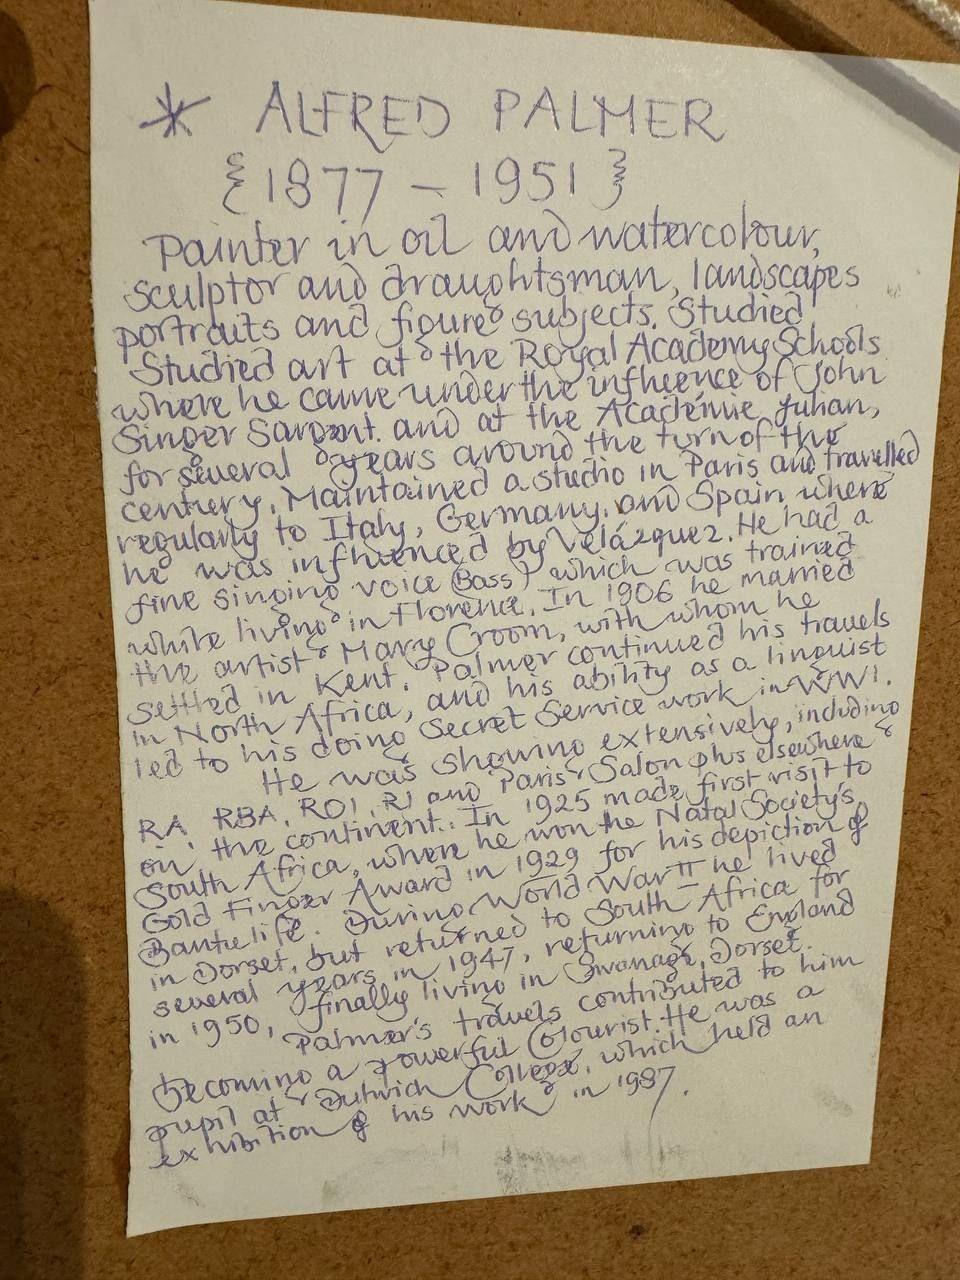 * ALFRED PALMER
{1877 - 1951}
Painter in oil and watercolour,
sculptor and draughtsman, landscapes
portraits and figure subjects. Studied
Studied art at the Royal Academy Schools
where he came under the influence of John
Singer Sargent. and at the Académie Julian,
for several years around the turn of the
century. Maintained a studio in Paris and travelled
regularly to Italy, Germany, and Spain where
he was influenced by Velázquez. He had a
fine singing voice (Bass) which was trained
while living in Florence. In 1906 he married
the artist Mary Croom, with whom he
settled in Kent. Palmer continued his travels
in North Africa, and his ability as a linguist
led to his doing Secret Service work in WW1.
He was showing extensively, including
RA, RBA, ROI, RI and Paris Salon plus elsewhere
on the continent. In 1925 made first visit to
South Africa, where he won the Natal Society's
Gold Finger Award in 1929 for his depiction of
Bantu life. During World War II he lived
in Dorset, but returned to South Africa for
several years in 1947, returning to England
in 1950, finally living in Swanage, Dorset.
Palmer's travels contributed to him
becoming a powerful Colourist. He was a
pupil at Dulwich College, which held an
exhibition of his work in 1987.